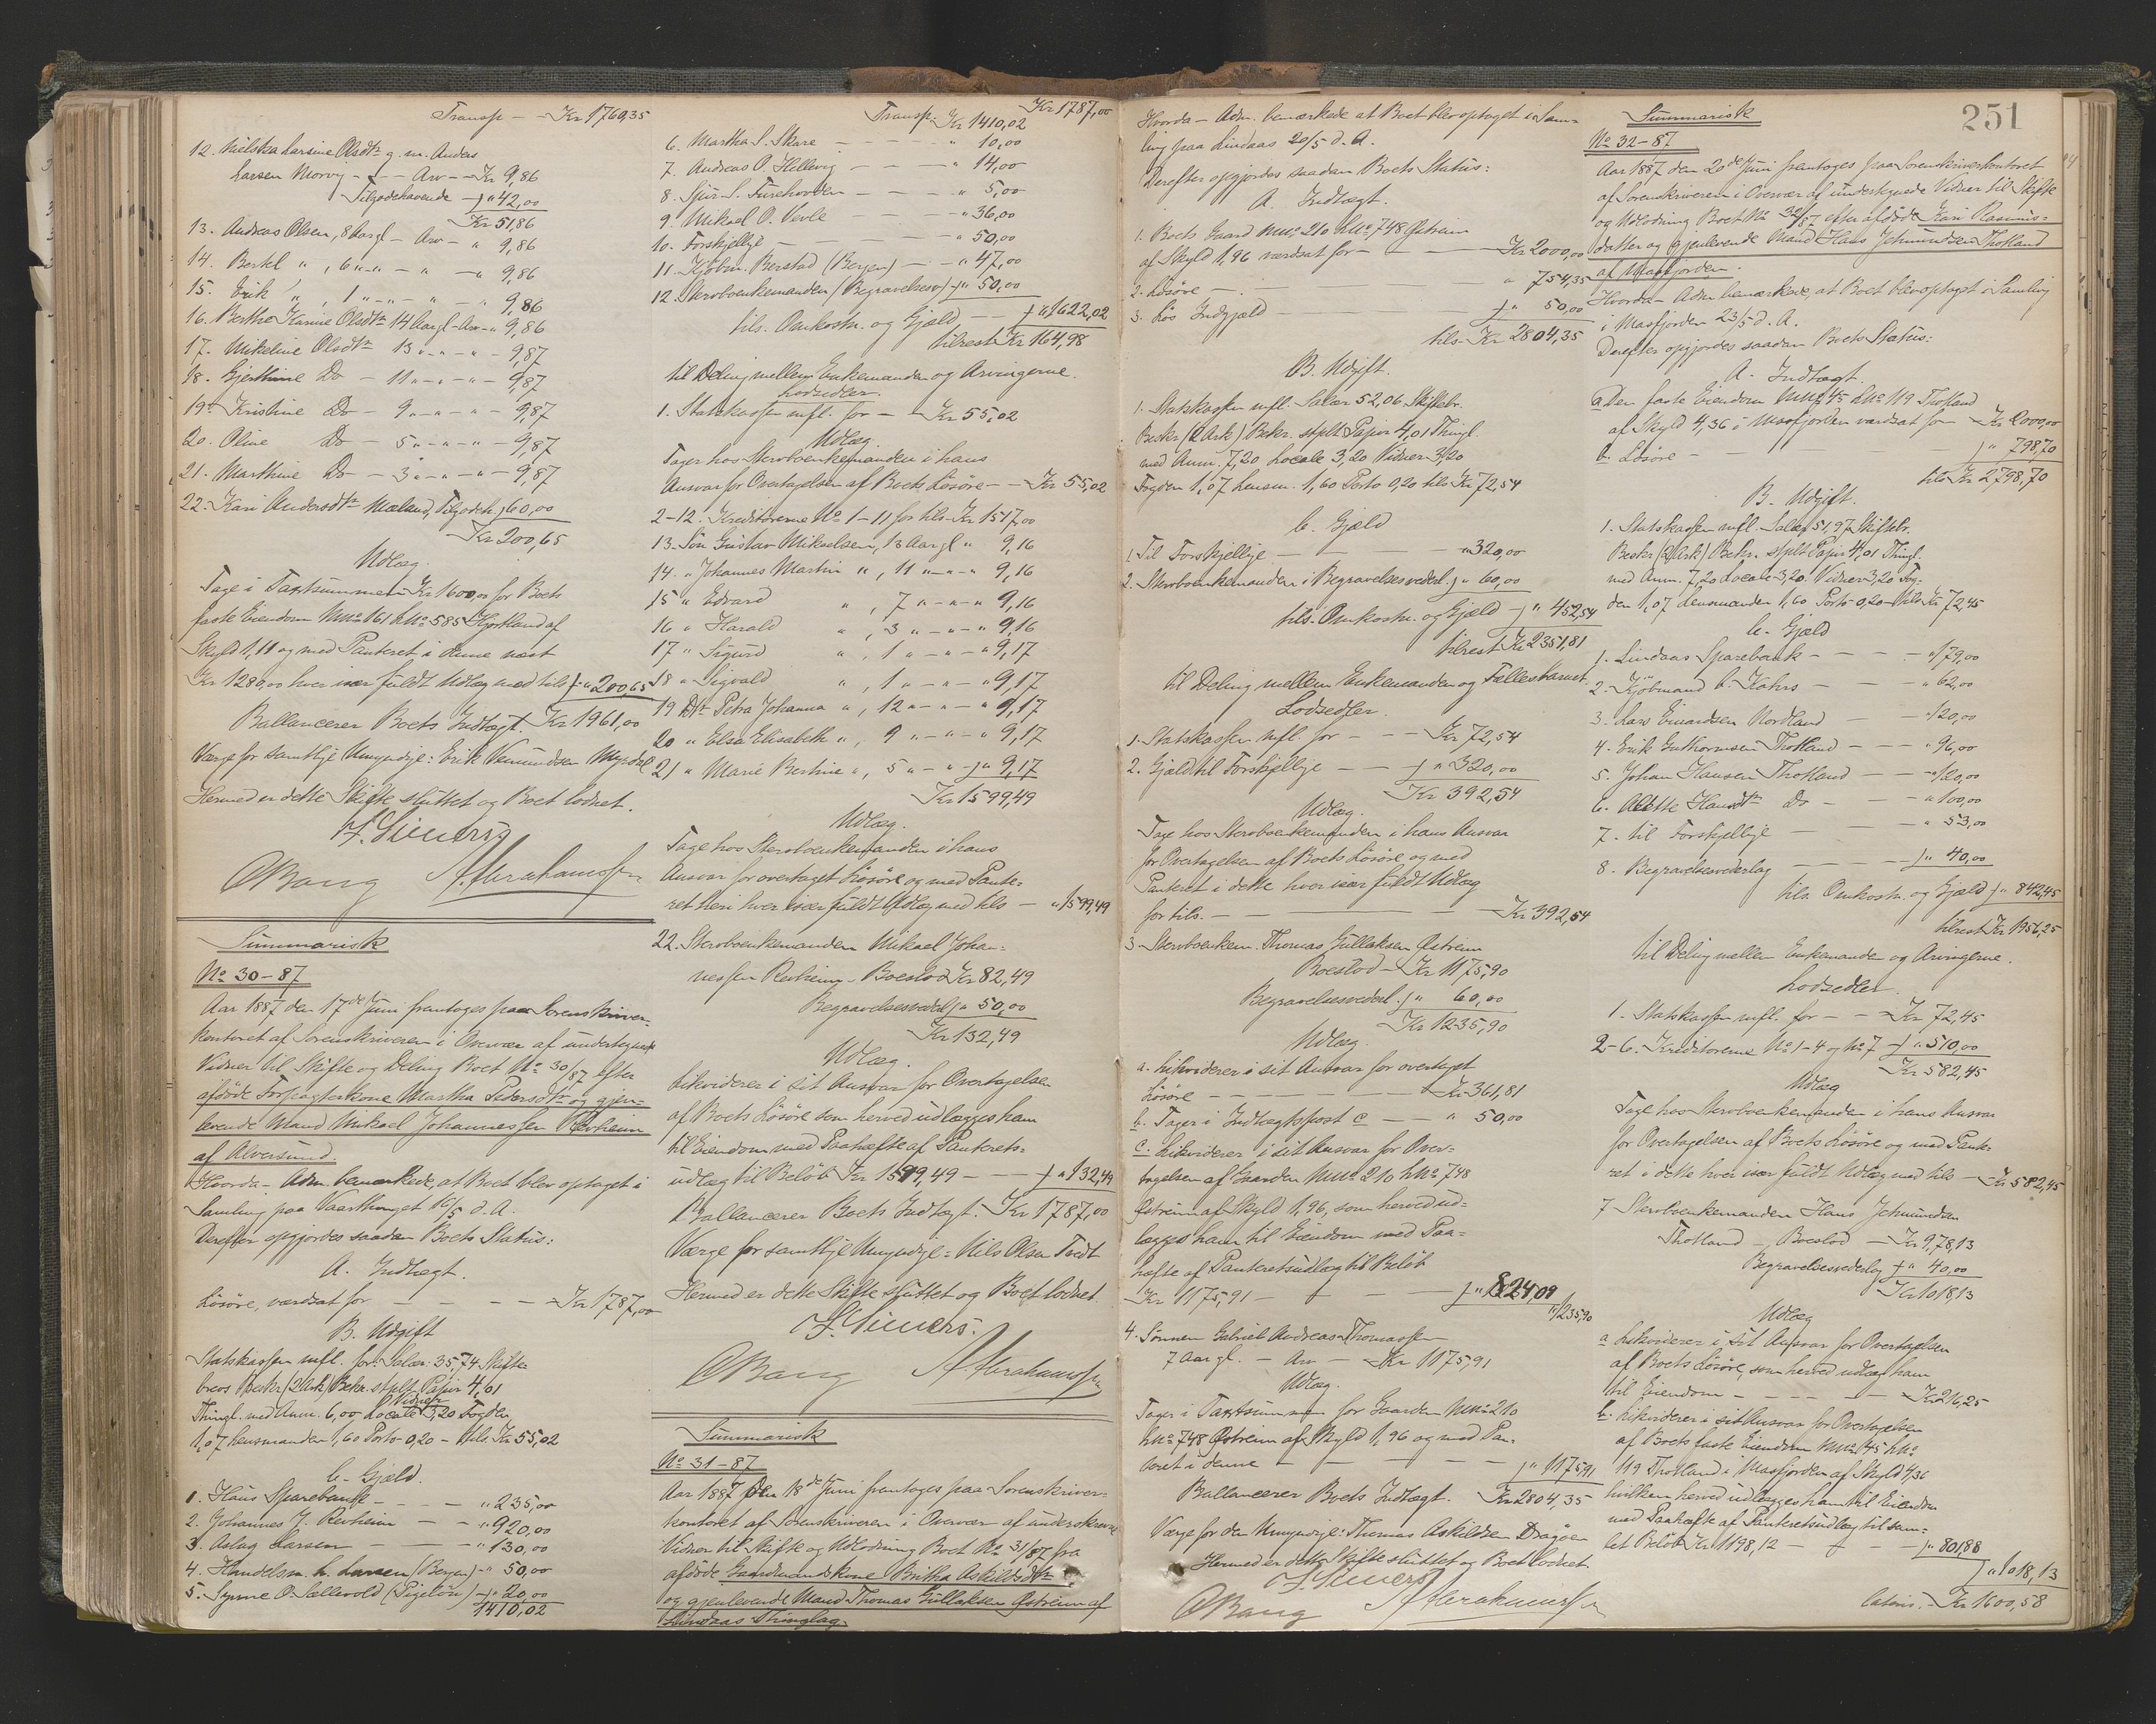 Transp - - Kr 1760,35
12. Nielska Larsine Olsdtr g. m. Anders
Larsen Morvig - - - Arv - - Kr 9,86
Tilgodehavende - " 42,00
Kr 51,86
13. Andreas Olsen, 8 Aar gl - Arv - " 9,86
14. Bertel " , 6 " - " - " - " 9,86
15. Erik " , 1 " - " - " - " 9,86
16. Berthe Karine Olsdtr 14 Aar gl - Arv - " 9,86
17. Mikeline Olsdtr 13 " - " - " - 9,87
18. Gjerthine Do - 11 " - " - " - 9,87
19. Kristine Do - 9 " - " - " - 9,87
20. Oline Do - 5 " - " - " - 9,87
21. Marthine Do - 3 " - " - " - 9,87
22. Kari Andersdtr Mæland, Tilgodeh. " 60,00
Kr 200,65
Udlæg.
Tage i Taxtsummen Kr 1600,00 for Boets
faste Eiendom Mno 161 Lno 585 Hjortland af
Skyld 1,11 og med Panteret i denne næst
Kr 1280,00 hver især fuldt Udlæg med tils " 200,65
Ballancerer Boets Indtægt. Kr 1961,00
Værge for samtlige Umyndige: Erik Vemundsen Myrdal
Hermed er dette Skifte sluttet og Boet lodnet.
F. Siewers
O Bang A. Abrahamssen
Summarisk
No 30-87
Aar 1887 den 17de Juni fremtoges paa Sorenskriver-
kontoret af Sorenskriveren i Overvær af undertegnede
Vidner til Skifte og Deling Boet No 30/87 efter
afdøde Forpagterkone Martha Pedersdtr og gjen-
levende Mand Mikael Johannessen Revheim
af Alversund.
Hvorda - Adm. bemærkede, at Boet blev optaget i
Samling paa Vaarthinget 16/5 d. A.
Derefter opgjordes saadan Boets Status:
A. Indtægt.
Løsøre, værdsat for - - - - - Kr 1787,00
B. Udgift
Statskassen mfl. for: Salær 35,74 Skifte-
brevs Beskr (2 Ark) Bekr. stplt Papir 4,01
Thingl. med Anm. 6,00 Locale Vidner 3,20 Fogden
1,07 Lensmanden 1,60 Porto 0,20 - tils. Kr 55,02
C. Gjæld.
1. Haus Sparebank - - - - " 235,00
2. Johannes J. Revheim - - " 920,00
3. Aslag Larsen - - - " 130,00
4. Handelsm. H. Larsen (Bergen) - " 50,00
5. Synne O. Sællevold (Pigeløn) - " 20,00
1410,02
Transp. Kr 1410,02 Kr 1787,00
6. Martha S. Skare - - - - - " 10,00
7. Andreas O. Hellevig - " 14,00
8. Sjur S. Furehovden - - - - " 5,00
9. Mikael O. Vevle - - - - " 36,00
10. Forskjellige - - - - - " 50,00
11. Kjøbm. Berstad (Bergen) - - " 47,00
12. Stervboenkemanden (Begravelsesv.) " 50,00
tils. Omkostn. og Gjæld - - " 1622,02
tilrest Kr 164,98
til Deling mellem Enkemanden og Arvingerne.
Lodsedler.
1. Statskassen mfl. for - - Kr 55,02
Udlæg.
Tages hos Stervboenkemanden i hans
Ansvar for Overtagelsen af Boets Løsøre - - Kr 55,02
2-12. Kreditorerne No 1-11 for tils. Kr 1517,00
13. Søn Gustav Mikaelsen, 13 Aar gl " 9,16
14. " Johannes Martin " , 11 " - " - " 9,16
15 " Edvard " , 7 " - " - " 9,16
16 " Harald " , 3 " - " - " 9,16
17 " Sigurd " , 1 " - " - " 9,17
18 " Sigvald " , 1 " - " - " 9,17
19 Dtr Petra Johanna " , 12 " - " - " 9,17
20 " Elsa Elisabeth " , 9 " - " - " 9,17
21 " Marie Bertine " , 5 " - " - " 9,17
Kr 1599,49
Udlæg.
Tage hos Stervboenkemanden i hans
Ansvar for overtaget Løsøre og med Pante-
ret heri hver især fuldt Udlæg med tils - " 1599,49
22. Stervboenkemanden Mikael Johan-
nessen Revheim - Boeslod Kr 82,49
Begravelsesvederl " 50,00
Kr 132,49
Udlæg.
Likviderer i sit Ansvar for Overtagelsen
af Boets Løsøre som herved udlægges ham
til Eiendom med Paahæfte af Panterets-
udlæg til Beløb Kr 1599,49 - - " 132,49
Ballancerer Boets Indtægt. Kr 1787,00
Værge for samtlige Umyndige: Nils Olsen Tvedt
Hermed er dette Skifte sluttet og Boet lodnet.
F. Siewers.
O Bang A. Abrahamssen
Summarisk
No 31-87
Aar 1887 den 18de Juni fremtoges paa Sorenskriver-
kontoret af Sorenskriveren i Overvær af underskrevne
Vidner til Skifte og Udlodning Boet No 31/87 fra
afdøde Gaardmandskone Britha Askildsdtr
og gjenlevende Mand Thomas Gullaksen Østreim af
Lindaas Thinglag.
Hvorda - Adm. bemærkede at Boet blev optaget i Sam-
ling paa Lindaas 20/5 d. A.
Derefter opgjordes saadan Boets Status:
A. Indtægt.
1. Boets Gaard Mno 210 Lno 748 Østreim
af Skyld 1,96 værdsat for - - - Kr 2000,00
2. Løsøre - - - " 754,35
3. Løs Indgjæld - - - " 50,00
tils. Kr 2804,35
B. Udgift.
1. Statskassen mfl. Salær 52,06 Skiftebr.
Beskr (2 Ark) Bekr. stplt Papir 4,01 Thingl.
med Anm. 7,20 Locale 3,20 Vidner 3,20
Fogden 1,07 Lensm. 1,60 Porto 0,20 tils Kr 72,54
C. Gjæld
1. Til Forskjellige - - - " 320,00
2. Stervboenkemanden i Begravelsesvederl. " 60,00
tils. Omkostn. og Gjæld - " 452,54
tilrest Kr 2351,81
til Deling mellem Enkemanden og Fællesbarnet.
Lodsedler.
1. Statskassen mfl. for - - - Kr 72,54
2. Gjæld til Forskjellige - - " 320,00
Kr 392,54
Udlæg.
Tage hos Stervboenkemanden i hans Ansvar
for Overtagelsen af Boets Løsøre og med
Panteret i dette hver især fuldt Udlæg
for tils. - - - - Kr 392,54
3. Stervboenkem. Thomas Gullaksen Østreim
Boeslod - Kr 1175,90
Begravelsesvederl. " 60,00
Kr 1235,90
Udlæg.
a. Likviderer i sit Ansvar for overtaget
Løsøre - - - - - Kr 361,81
b. Tager i Indtægtspost c - - " 50,00
c. Likviderer i sit Ansvar for Over-
tagelsen af Gaarden Mno 210 Lno 748
Østreim af Skyld 1,96, som herved ud-
lægges ham til Eiendom med Paa-
hæfte af Panteretsudlæg til Beløb
Kr 1175,91 - - - " 824,09
" 1235,90
4. Sønnen Gabriel Andreas Thomassen
7 Aar gl. - Arv - Kr 1175,91
Udlæg.
Tager i Taxtsummen for Gaarden Mno 210
Lno 748 Østreim af Skyld 1,96 og med Pan-
teret i denne - - - - " 1175,91
Ballancerer Boets Indtægt. Kr 2804,35
Værge for den Umyndige: Thomas Askildsen Dragøen
Hermed er dette Skifte sluttet og Boet lodnet.
F. Siewers
O Bang A. Abrahamssen
251
Summarisk
No 32-87
Aar 1887 den 20de Juni fremtoges paa Sorenskriverkontoret
af Sorenskriveren i Overvær af undertegnede Vidner til Skifte
og Udlodning Boet No 32/87 efter afdøde Kari Rasmus-
datter og gjenlevende Mand Hans Jehmundsen Thotland
af Masfjorden.
Hvorda - Adm bemærkede, at Boet blev optaget i Samling
i Masfjorden 23/5 d. A.
Derefter opgjordes saadan Boets Status:
A. Indtægt.
a Den faste Eiendom Mno 45 Lno 119 Thotland
af Skyld 4,36 i Masfjorden værdsat for - Kr 2000,00
b. Løsøre - - - " 798,70
tils Kr 2798,70
B. Udgift.
1. Statskassen mfl. Salær 51,97 Skiftebr.
Beskr (2 Ark) Bekr. stplt Papir 4,01 Thingl.
med Anm. 7,20 Locale 3,20 Vidner 3,20 Fog-
den 1,07 Lensmanden 1,60 Porto 0,20 tils Kr 72,45
C. Gjæld
1. Lindaas Sparebank - - - - " 179,00
2. Kjøbmand C. Kahrs - - - " 62,00
3. Lars Einardsen Nordland - - " 120,00
4. Erik Guthormsen Thotland - - - " 96,00
5. Johan Hansen Thotland - - - " 120,00
6. Alette Hansdtr Do - - - " 100,00
7. til Forskjellige - - - " 53,00
8. Begravelsesvederlag - - - - " 40,00
tils. Omkostn. og Gjæld " 842,45
tilrest Kr 1956,25
til Deling mellem Enkemanden og Arvingerne.
Lodsedler.
1. Statskassen mfl. for - - Kr 72,45
2-6. Kreditorerne No 1-4 og No 7 - " 510,00
Kr 582,45
Udlæg
Tage hos Stervboenkemanden i hans Ansvar
for Overtagelsen af Boets Løsøre og med Pante-
ret i dette hver især fuldt Udlæg med tils - Kr 582,45
7 Stervboenkemanden Hans Jehmundsen
Thotland - Boeslod - Kr 978,13
Begravelsesvederlag " 40,00
Kr 1018,13
Udlæg
a Likviderer i sit Ansvar for Overtagelsen
af Boets Løsøre, som herved udlæg. ham
til Eiendom - - - - - Kr 216,25
b. Likviderer i sit Ansvar for Overtagelsen
af Boets faste Eiendom Mno 45 Lno
119 Thotland i Masfjorden af Skyld 4,36
hvilken herved udlægges ham til Eiendom
med Paahæfte af Panteretsudlæg til sam-
let Beløb Kr 1198,12 - - - " 801,88
" 1018,13
Lateris. - Kr 1600,58